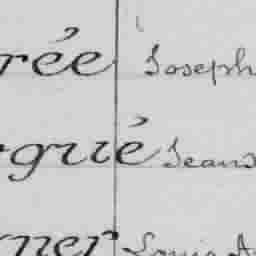 rée Joseph
rgué Jean
rner Louis A